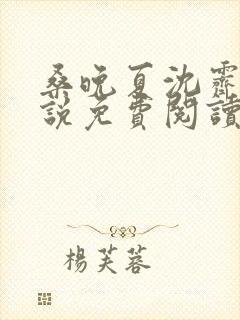 桑晚夏沈霽
說免費閱讀
楊芙蓉